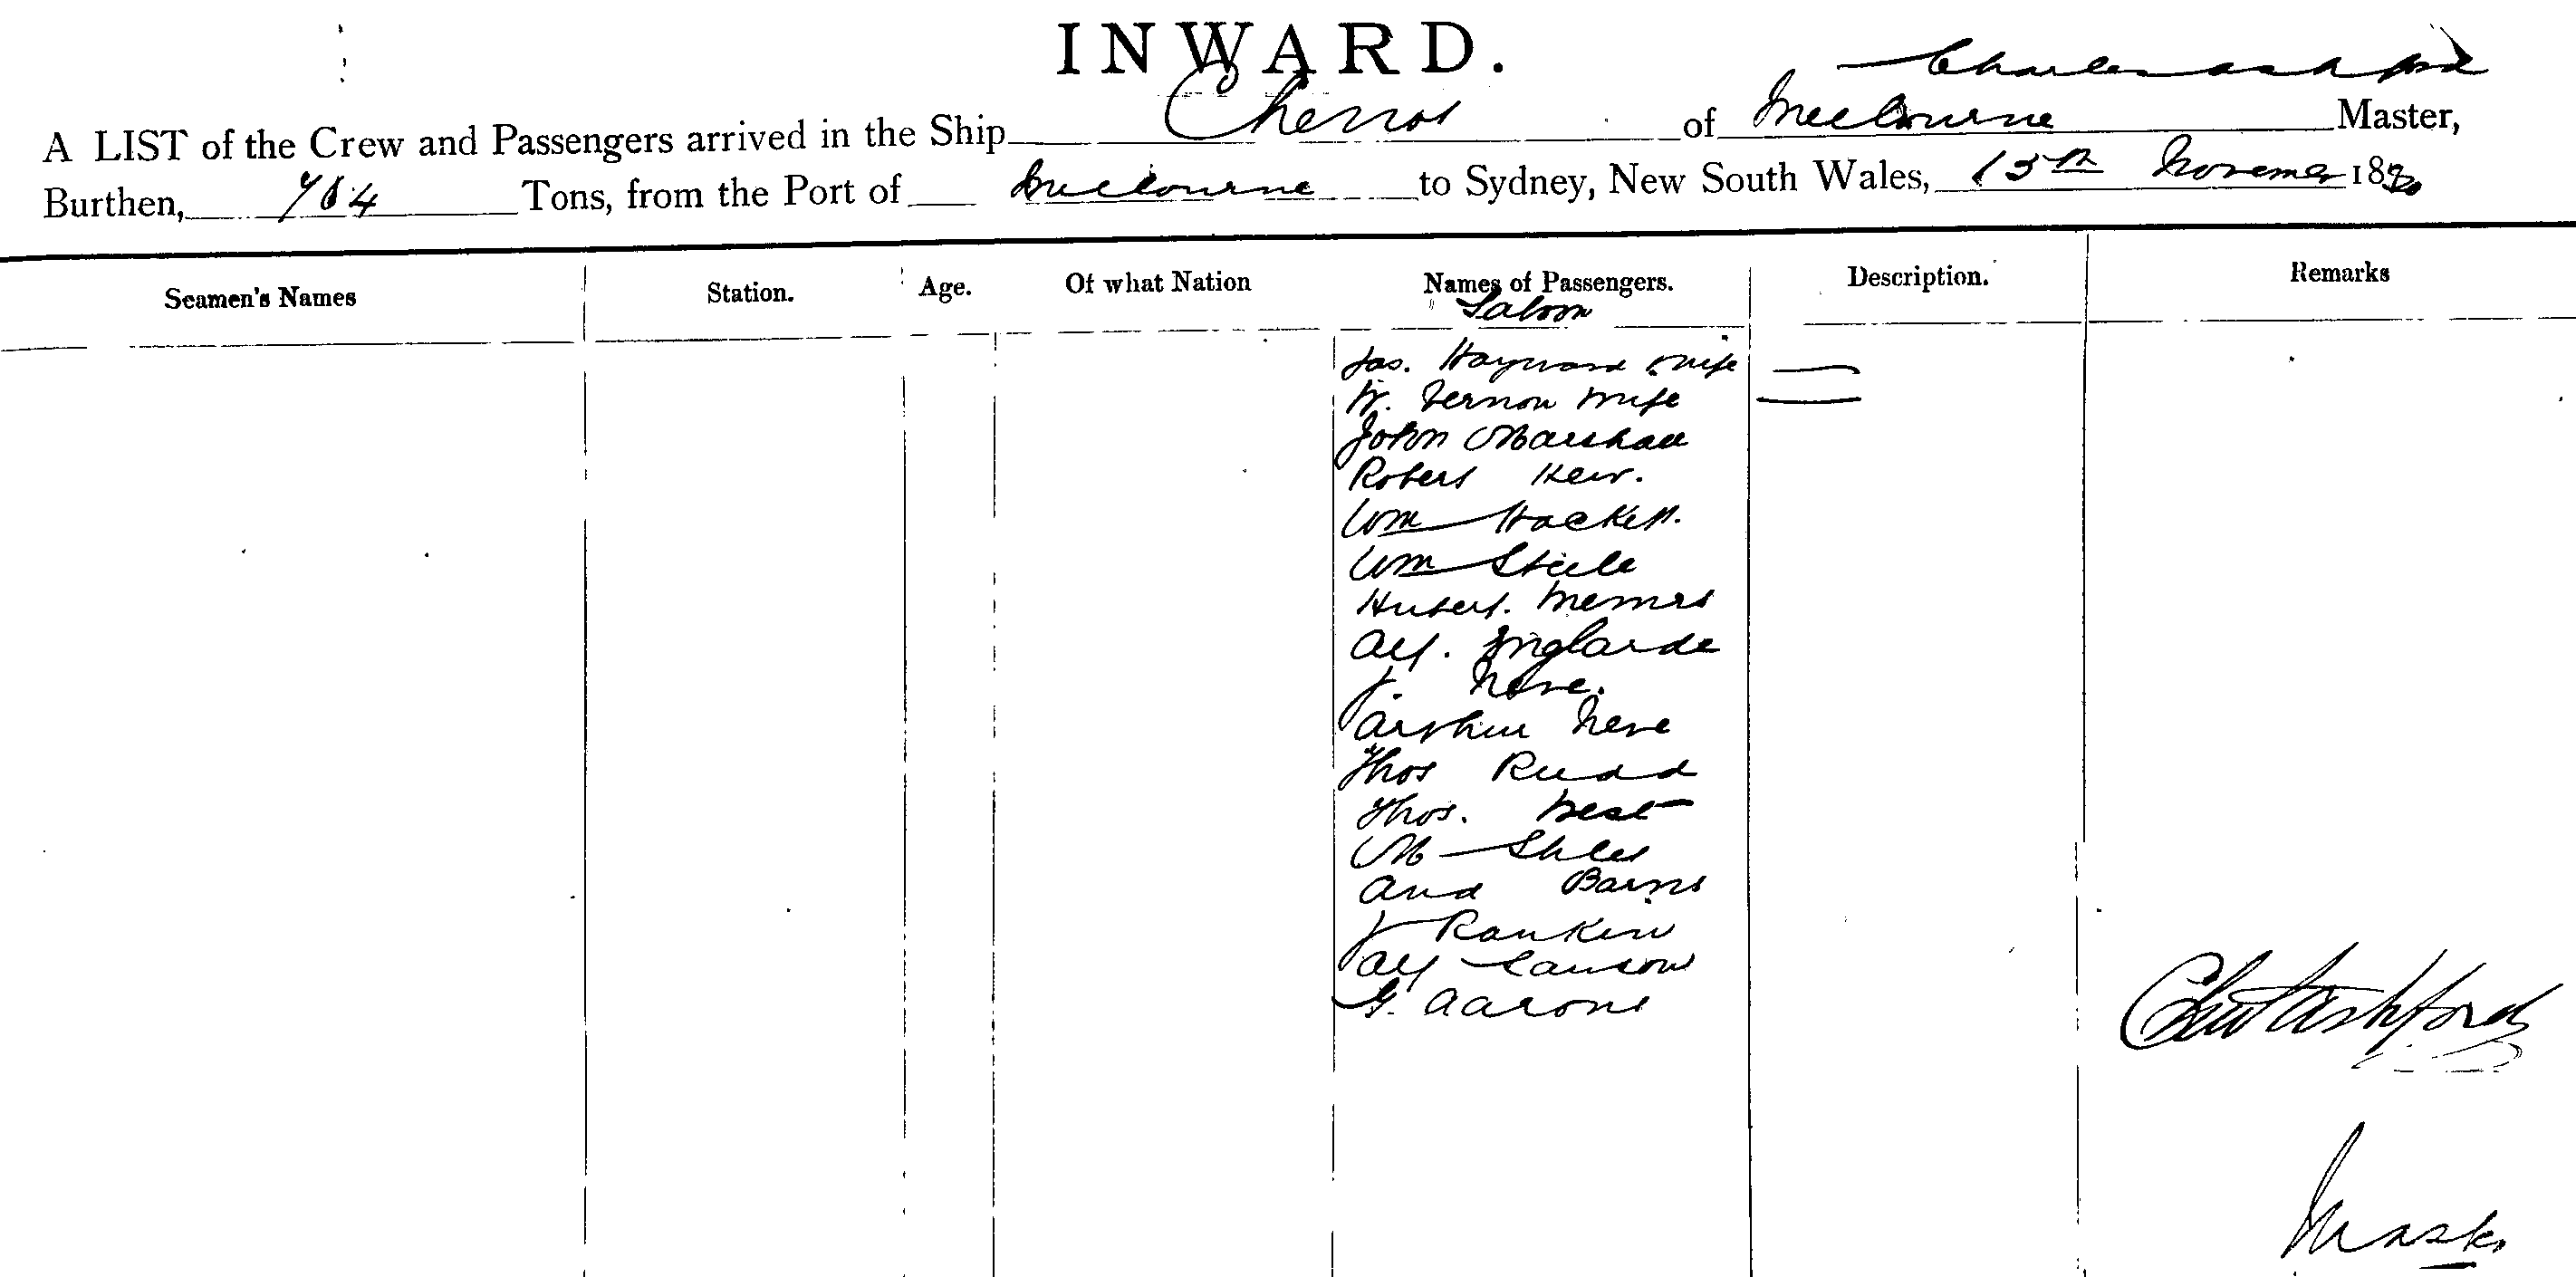 INWARD.
Charles Ashford
A LIST of the Crew and Passengers arrived in the Ship of Melbourne Master,
Burthen, 704 Tons, from the Port of Melbourne to Sydney, New South Wales, 15th November 1890
Seamen's Names Station. Age. Of what Nation Names of Passengers. Description. Remarks
Saloon
Jas. Hayward & wife
W. Vernon wife
John Marshall
Robert
Wm Hackett.
Wm Steele
Hubert.
Alf.
J. Neve.
Arthur Neve
Thos Rudd
Thos. West
M
And Barns
J Rankin
Alf
G. Aarons
Chas Ashford
Mast.